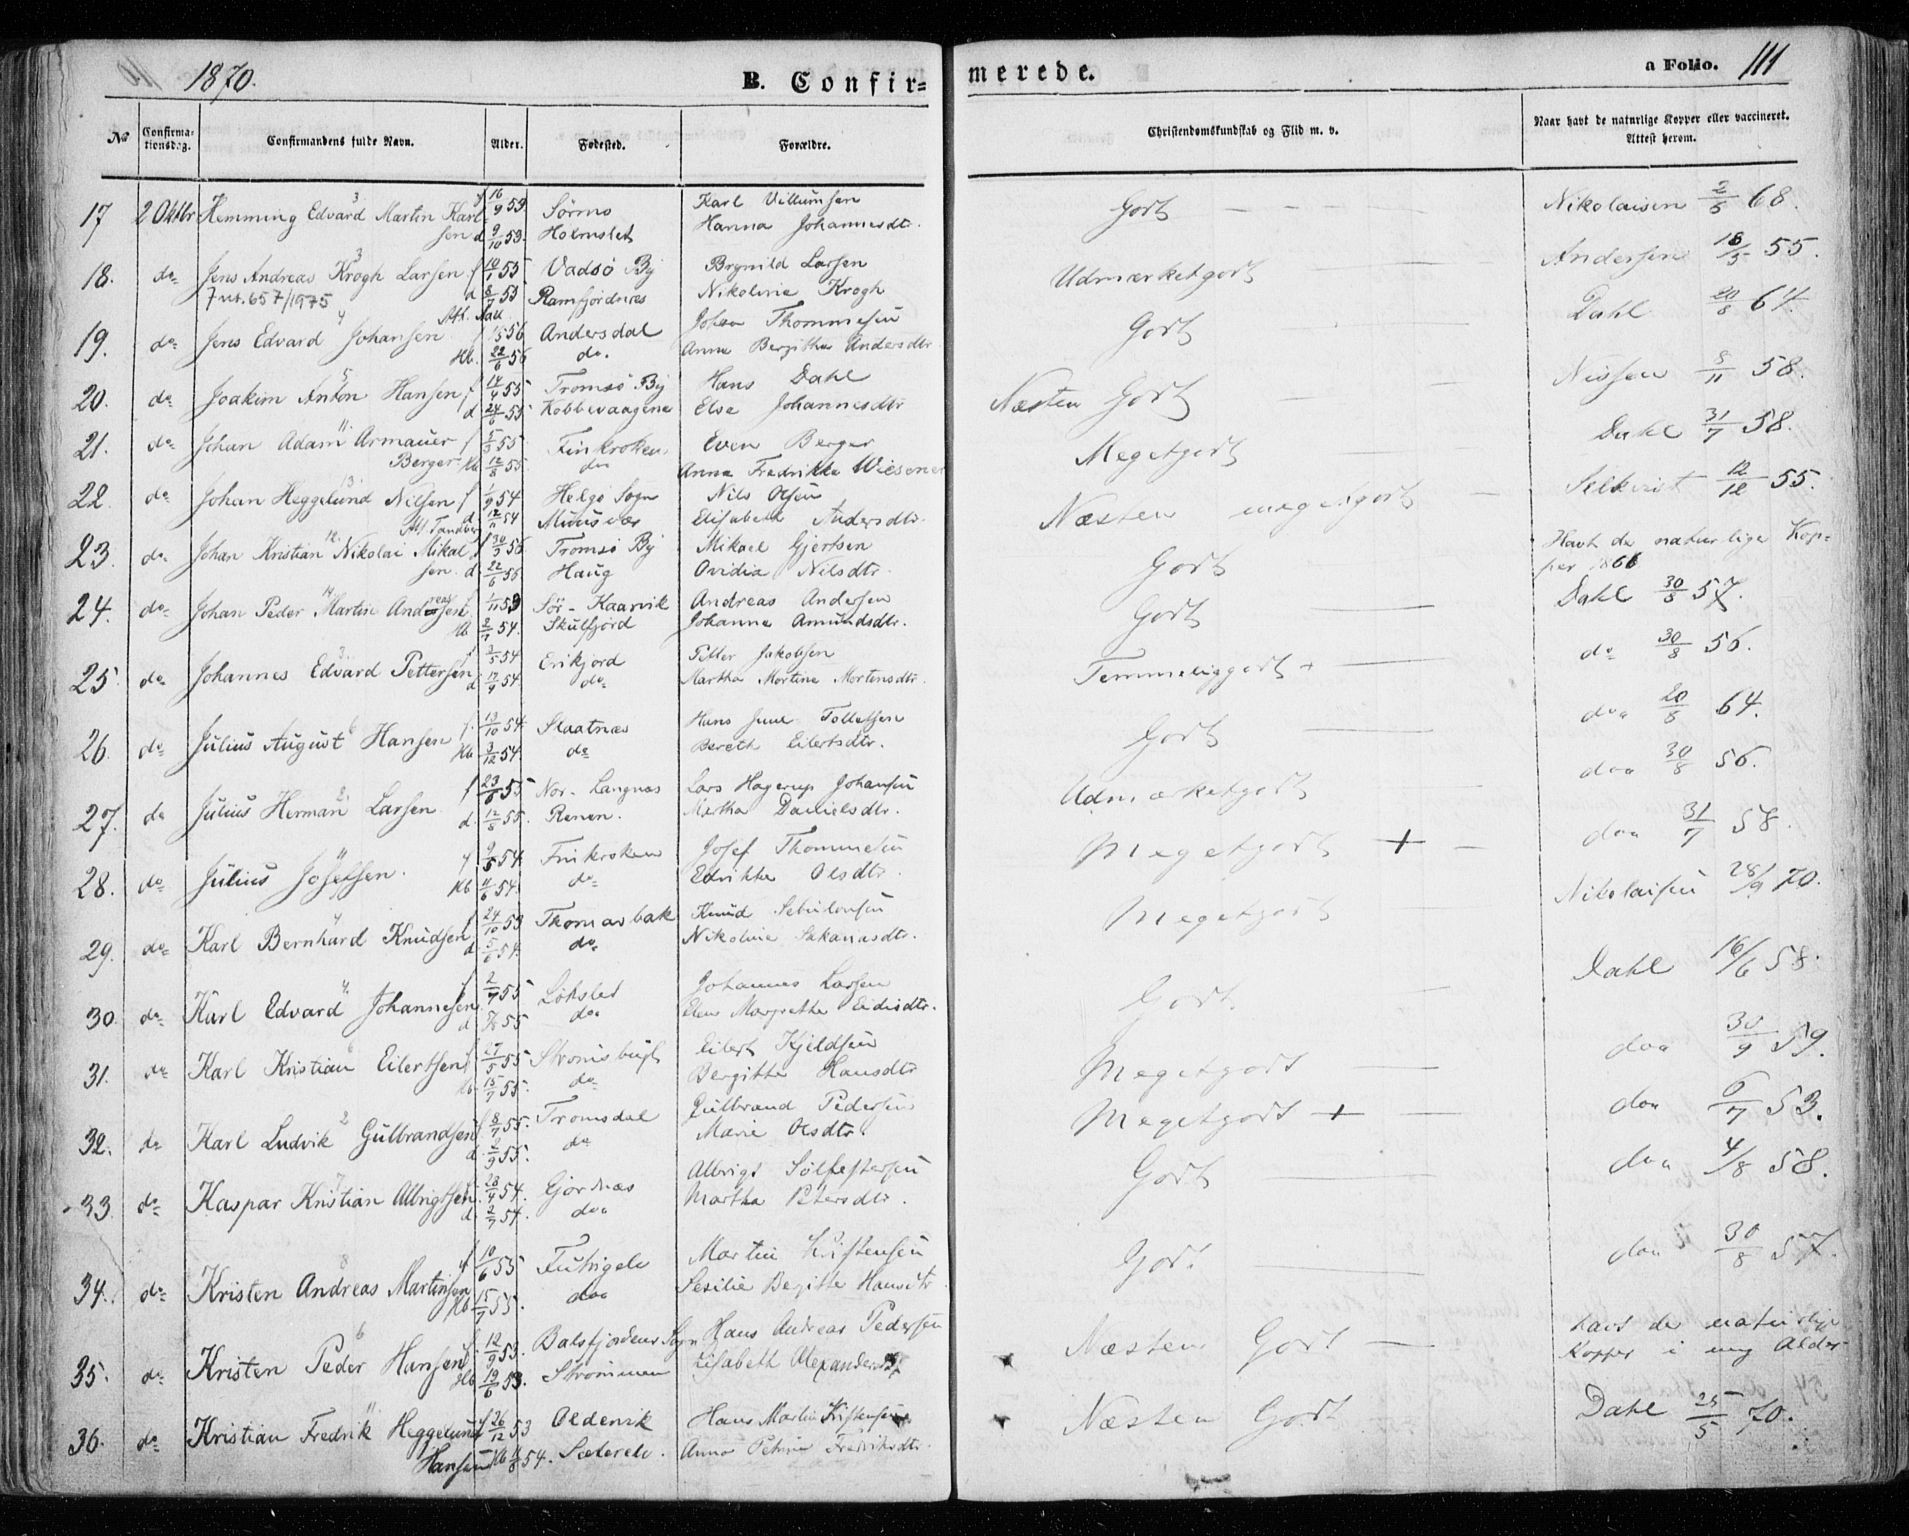 1870.
B. Confir= merede.
a Folio. 111
No Confirmationsdag. Confirmandens fulde Navn. Alder. Fødested. Forældre. Christendomskundskab og Flid m. v. Naar havt de naturlige Kopper eller vaccineret. Attest herom.
17 2 Oktbr Hemming Edvard Martin Karl f 16/9 53 Sørnes Karl Villumsen Godt Nikolaisen 2/5 68.
sen d 9/10 53. Holmslet Hanna Johannesdtr.
18. do Jens Andreas Krogh Larsen f 10/1 55 Vadsø By Brynild Larsen Udmærketgodt Andersen 18/5 55.
7 ut. 657/1975 d 8/7 55 Ramfjordnæs Nikoline Krogh
19. do Jens Edvard Johansen f 1/5 56 Andersdal Johan Thommesen Godt Dahl 20/8 64.
Hb. 22/6 56 do. Anna Bergitha Andersdtr
20. do Joakim Anton Hansen f 14/4 55 Tromsø By Hans Dahl Næsten Godt Nissen 5/11 58.
d. 24/6 55 Kobbevaagene Else Johannesdtr
21. do Johan Adam Armauer f 5/3 55 Finkroken Even Berger Megetgodt Dahl 31/7 58.
Berger Hb 12/8 55. do Anna Fredrikke Wiesener
22 do Johan Heggelund Nilsen f 1/9 54 Helgø Sogn Nils Olsen Næsten megetgodt Selkvist 12/12 55.
d 12/11 54 Muusvær Elisabeth Andersdtr.
23. do Johan Kristian Nikolai Mikal f 30/3 56 Tromsø By Mikael Gjertsen Godt Havt de naturlige Kop=
sen. d. 22/6 56 Haug Ovidia Nilsdtr. per 1866
24. do Johan Peder Martin Andreasen f 1/11 53 Sør-Kaarvik Andreas Andersen Godt Dahl 30/8 57.
Hb 2/7 54. Skulfjord Johanna Amundsdtr.
25. do Johannes Edvard Pettersen f 2/5 54 Erikjord Petter Jakobsen Temmeliggodt + do 30/8 56.
d 17/9 54. do. Martha Mortine Mortensdtr.
26 do Julius August Hansen f. 13/10 54 Slaatnæs Hans Juul Tollefsen Godt do 20/8 64.
Hb 3/12 54. do Bereth Eilertsdtr.
27. do Julius Herman Larsen f 23/6 55 Nor-Langnæs Lars Hagerup Johansen Udmærketgodt do 30/8 56.
d. 12/8 55. Renen. Martha Danielsdtr.
28. do Julius Josefsen. f 9/5 54 Finkroken Josef Thommesen Megetgodt + do 31/7 58.
Hb 11/6 54. do Edrikke Olsdtr.
29. do Karl Bernhard Knudsen f 24/10 53 Thomasbak Knud Sebulonsen Megetgodt Nikolaisen 28/9 70.
d 5/6 54. do. Nikoline Sakariasdtr.
30. do Karl Edvard Johannesen f 2/7 55 Løkslet Johannes Larsen Godt. Dahl 16/6 58.
d 55 do Elen Margrethe Eidisdtr.
31. do Karl Kristian Eilertsen f 27/5 55 Stromsbugt Eilert Kjeldsen Megetgodt do 30/9 59.
Hb 15/7 55. do. Bergitte Hansdtr
32. do Karl Ludvik Gulbrandsen f 8/7 55. Tromsdal Gulbrand Pedersen Megetgodt + do 6/7 53.
d. 2/9 55. do Marie Olsdtr.
33. do Kaspar Kristian Albrigtsen f 28/4 54. Gjørdnæs Albrigt Sølfestersen Godt do 4/8 58.
d. 2/7 54. do Martha Petersdtr.
34. do Kristen Andreas Martinsen f 10/6 55 Futrigelv Martin Kristensen Godt do 30/8 57.
Hb 15/7 55. do Sesilie Begitte Hansdtr
35. do Kristen Peder Hansen f. 12/9 53. Balsfjordens Sogn Hans Andreas Pedersen Næsten Godt Havt de naturlige
Hb 19/6 53. Strømmen Elisabeth Alexandersdtr Kopper i ung Alder
36. do Kristian Fredrik Heggelund f 26/12 53 Oldervik Hans Martin Kristensen Næsten Godt Dahl 25/5 70.
Hansen Hb 54. Sæterelv. Anna Petrine Fredriksdtr.